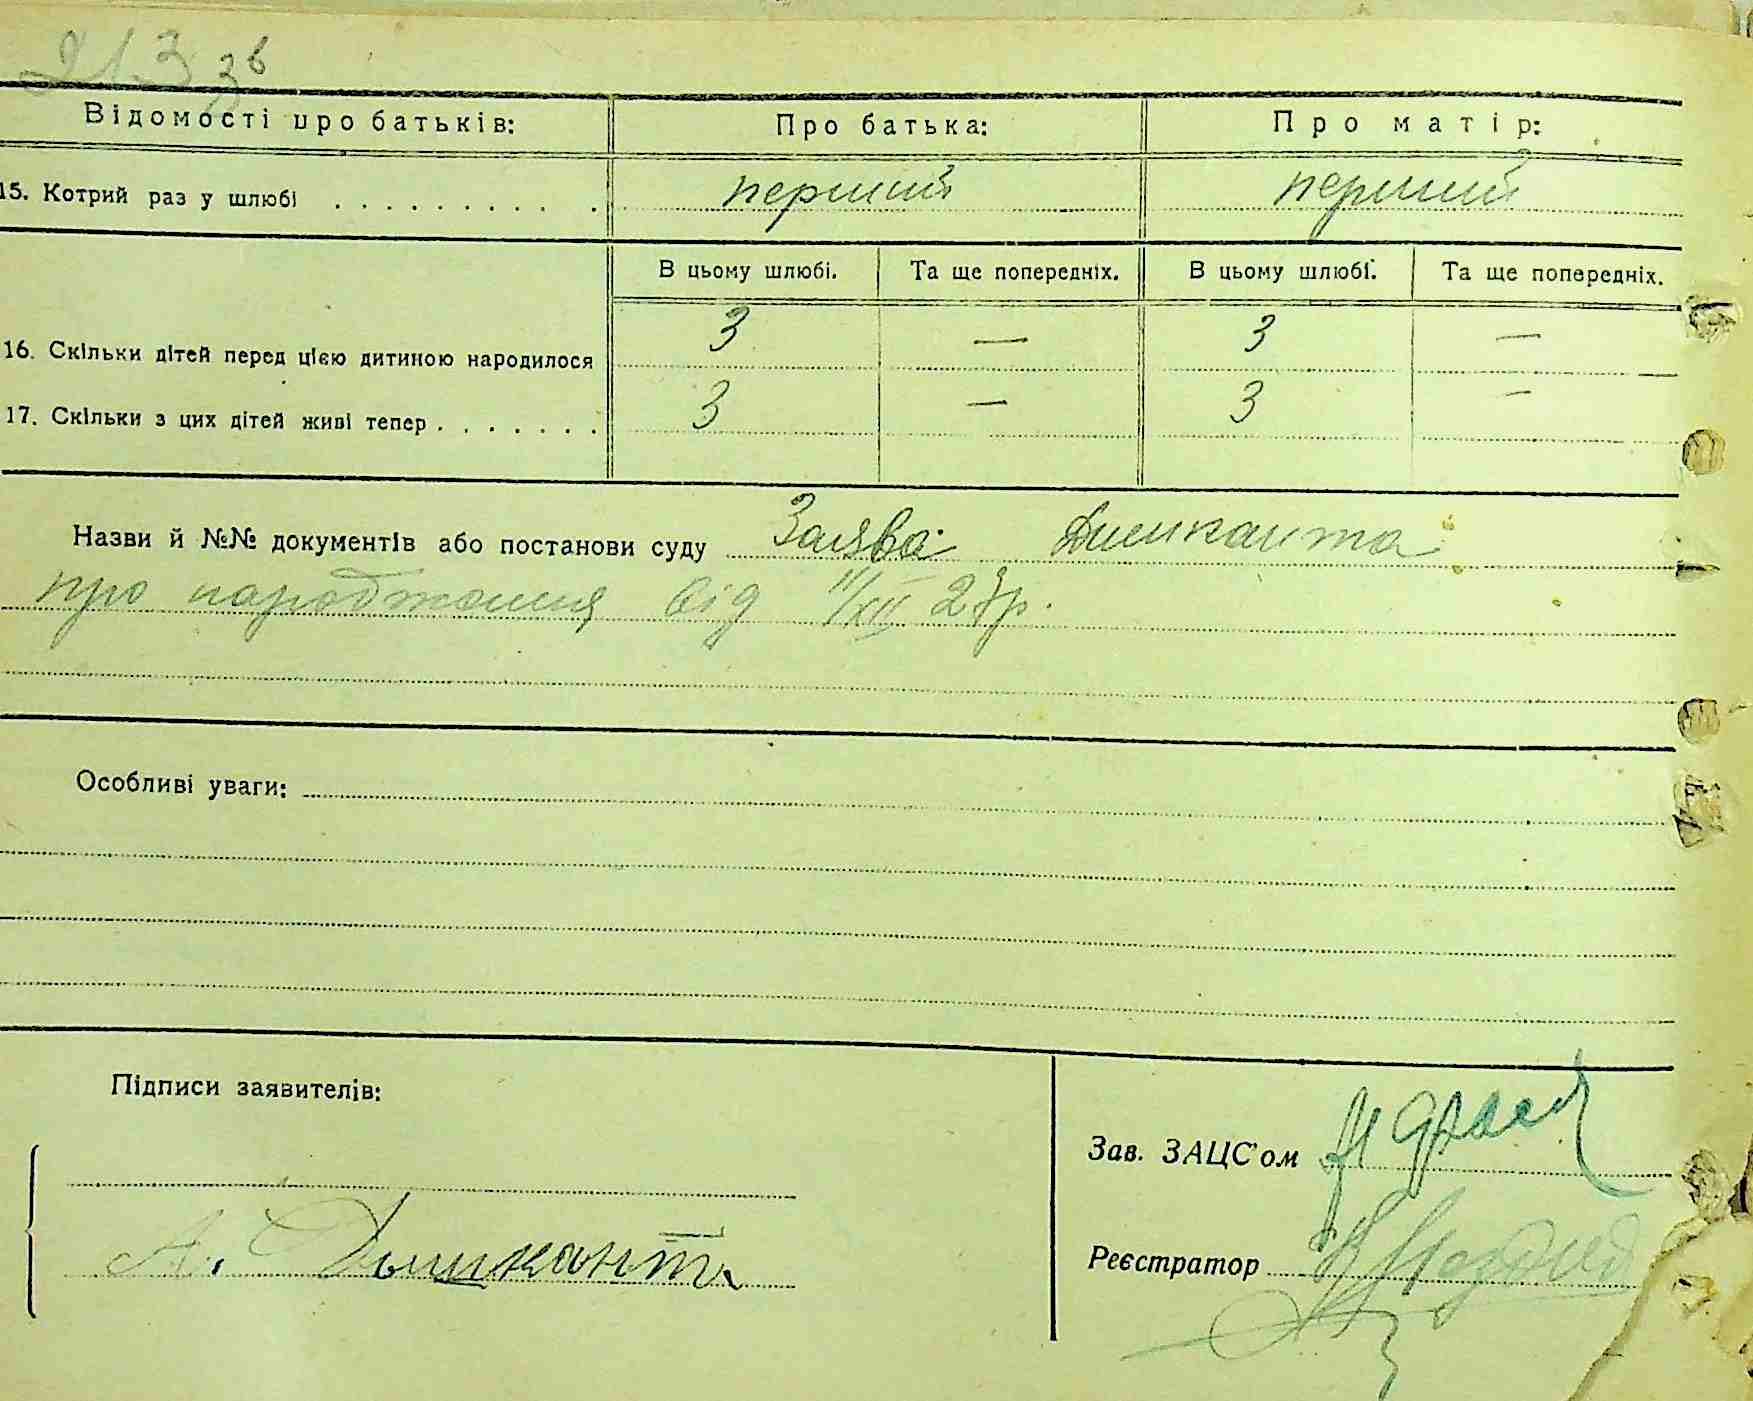 213 зв
Відомості про батьків: Про батька: Про матір:
15. Котрий раз у шлюбі . . . . . . . . . . перший перший
В цьому шлюбі. Та ще попередніх. В цьому шлюбі. Та ще попередніх.
16. Скільки дітей перед цією дитиною народилося 3 — 3 —
17. Скільки з цих дітей живі тепер . . . . . . . 3 — 3 —
Назви й №№ документів або постанови суду Заява Дишканта
про народження від 11/XII 27р.
Особливі уваги:
Підписи заявителів:
Зав. ЗАЦС'ом
А. Дышкантъ
Реєстратор